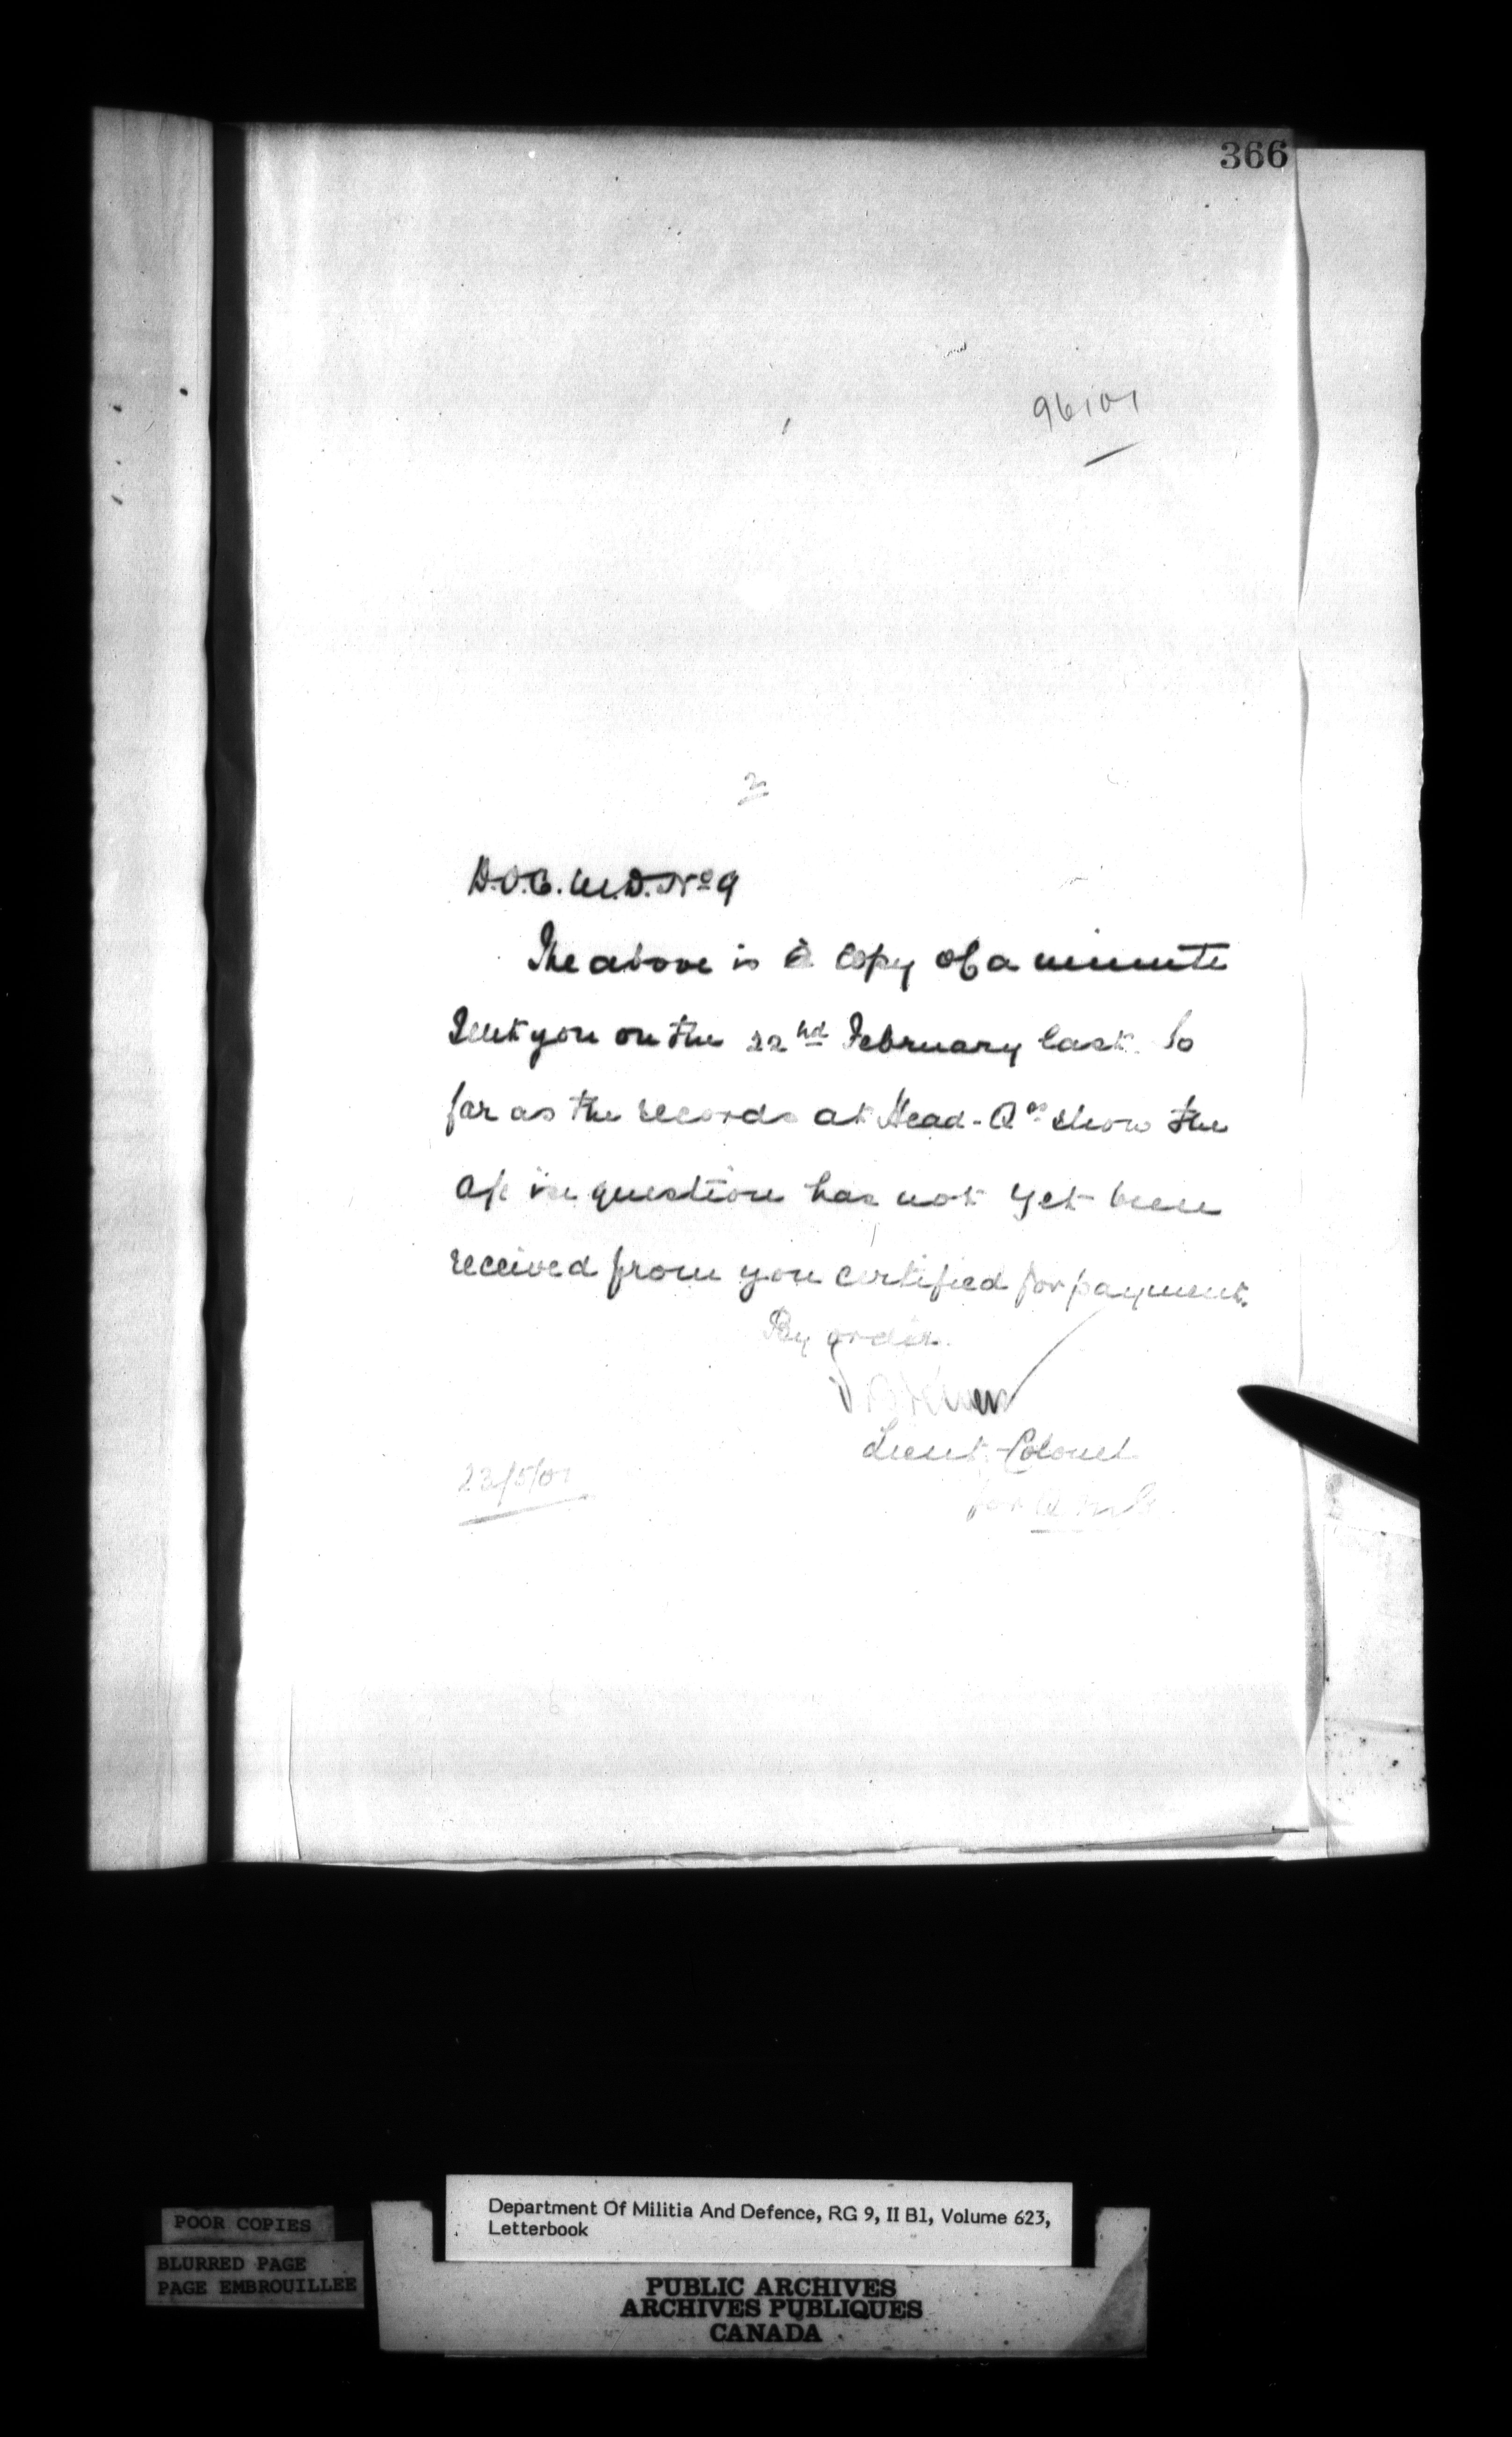 366
96101
2
D.O.C. M.D. Nº 9
The above is a copy of a minute
sent you on the 22nd February last. So
far as the records at Head-Qrs show the
a/c in question has not yet been
received from you certified for payment.
By order.
Lieut-Colonel
for Q.M.G.
23/5/01
Department Of Militia And Defence, RG 9, II B1, Volume 623,
Letterbook
POOR COPIES
BLURRED PAGE
PAGE EMBROUILLEE
PUBLIC ARCHIVES
ARCHIVES PUBLIQUES
CANADA